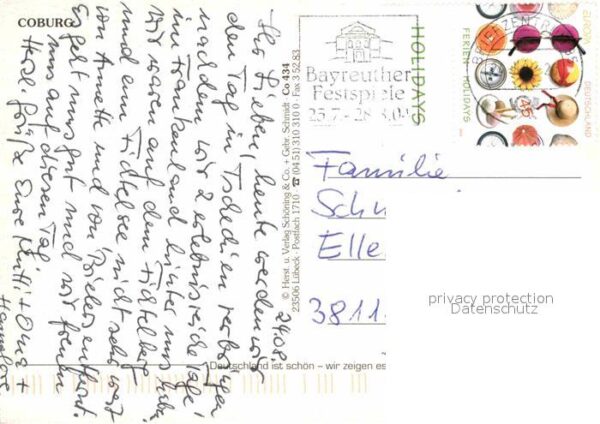 COBURG
24.08.
Ihr Lieben, heute werden wir
den Tag in Tschechien verbringen
nachdem wir 2 erlebnisreiche Tage
im Frankenland hinter uns haben.
Wir waren auf dem Fichtelberg
und am Fichtelsee nicht sehr weit
von Annette und von entfernt.
Es geht uns gut und wir freuen
uns auf diesen Tag
Herzl. Grüße Eure Mutti + Oma
Hannelore
© Herst. u. Verlag Schöning & Co. + Gebr. Schmidt Co 434
23506 Lübeck · Postfach 1710 · ☎ (04 51) 310 310 · Fax 3 52 83
Bayreuther
Festspiele
25.7.-28.8.0
HOLIDAYS
FERIEN HOLIDAYS
DEUTSCHLAND
45
Familie
Sch
Elle
3811
privacy protection
Datenschutz
Deutschland ist schön – wir zeigen es